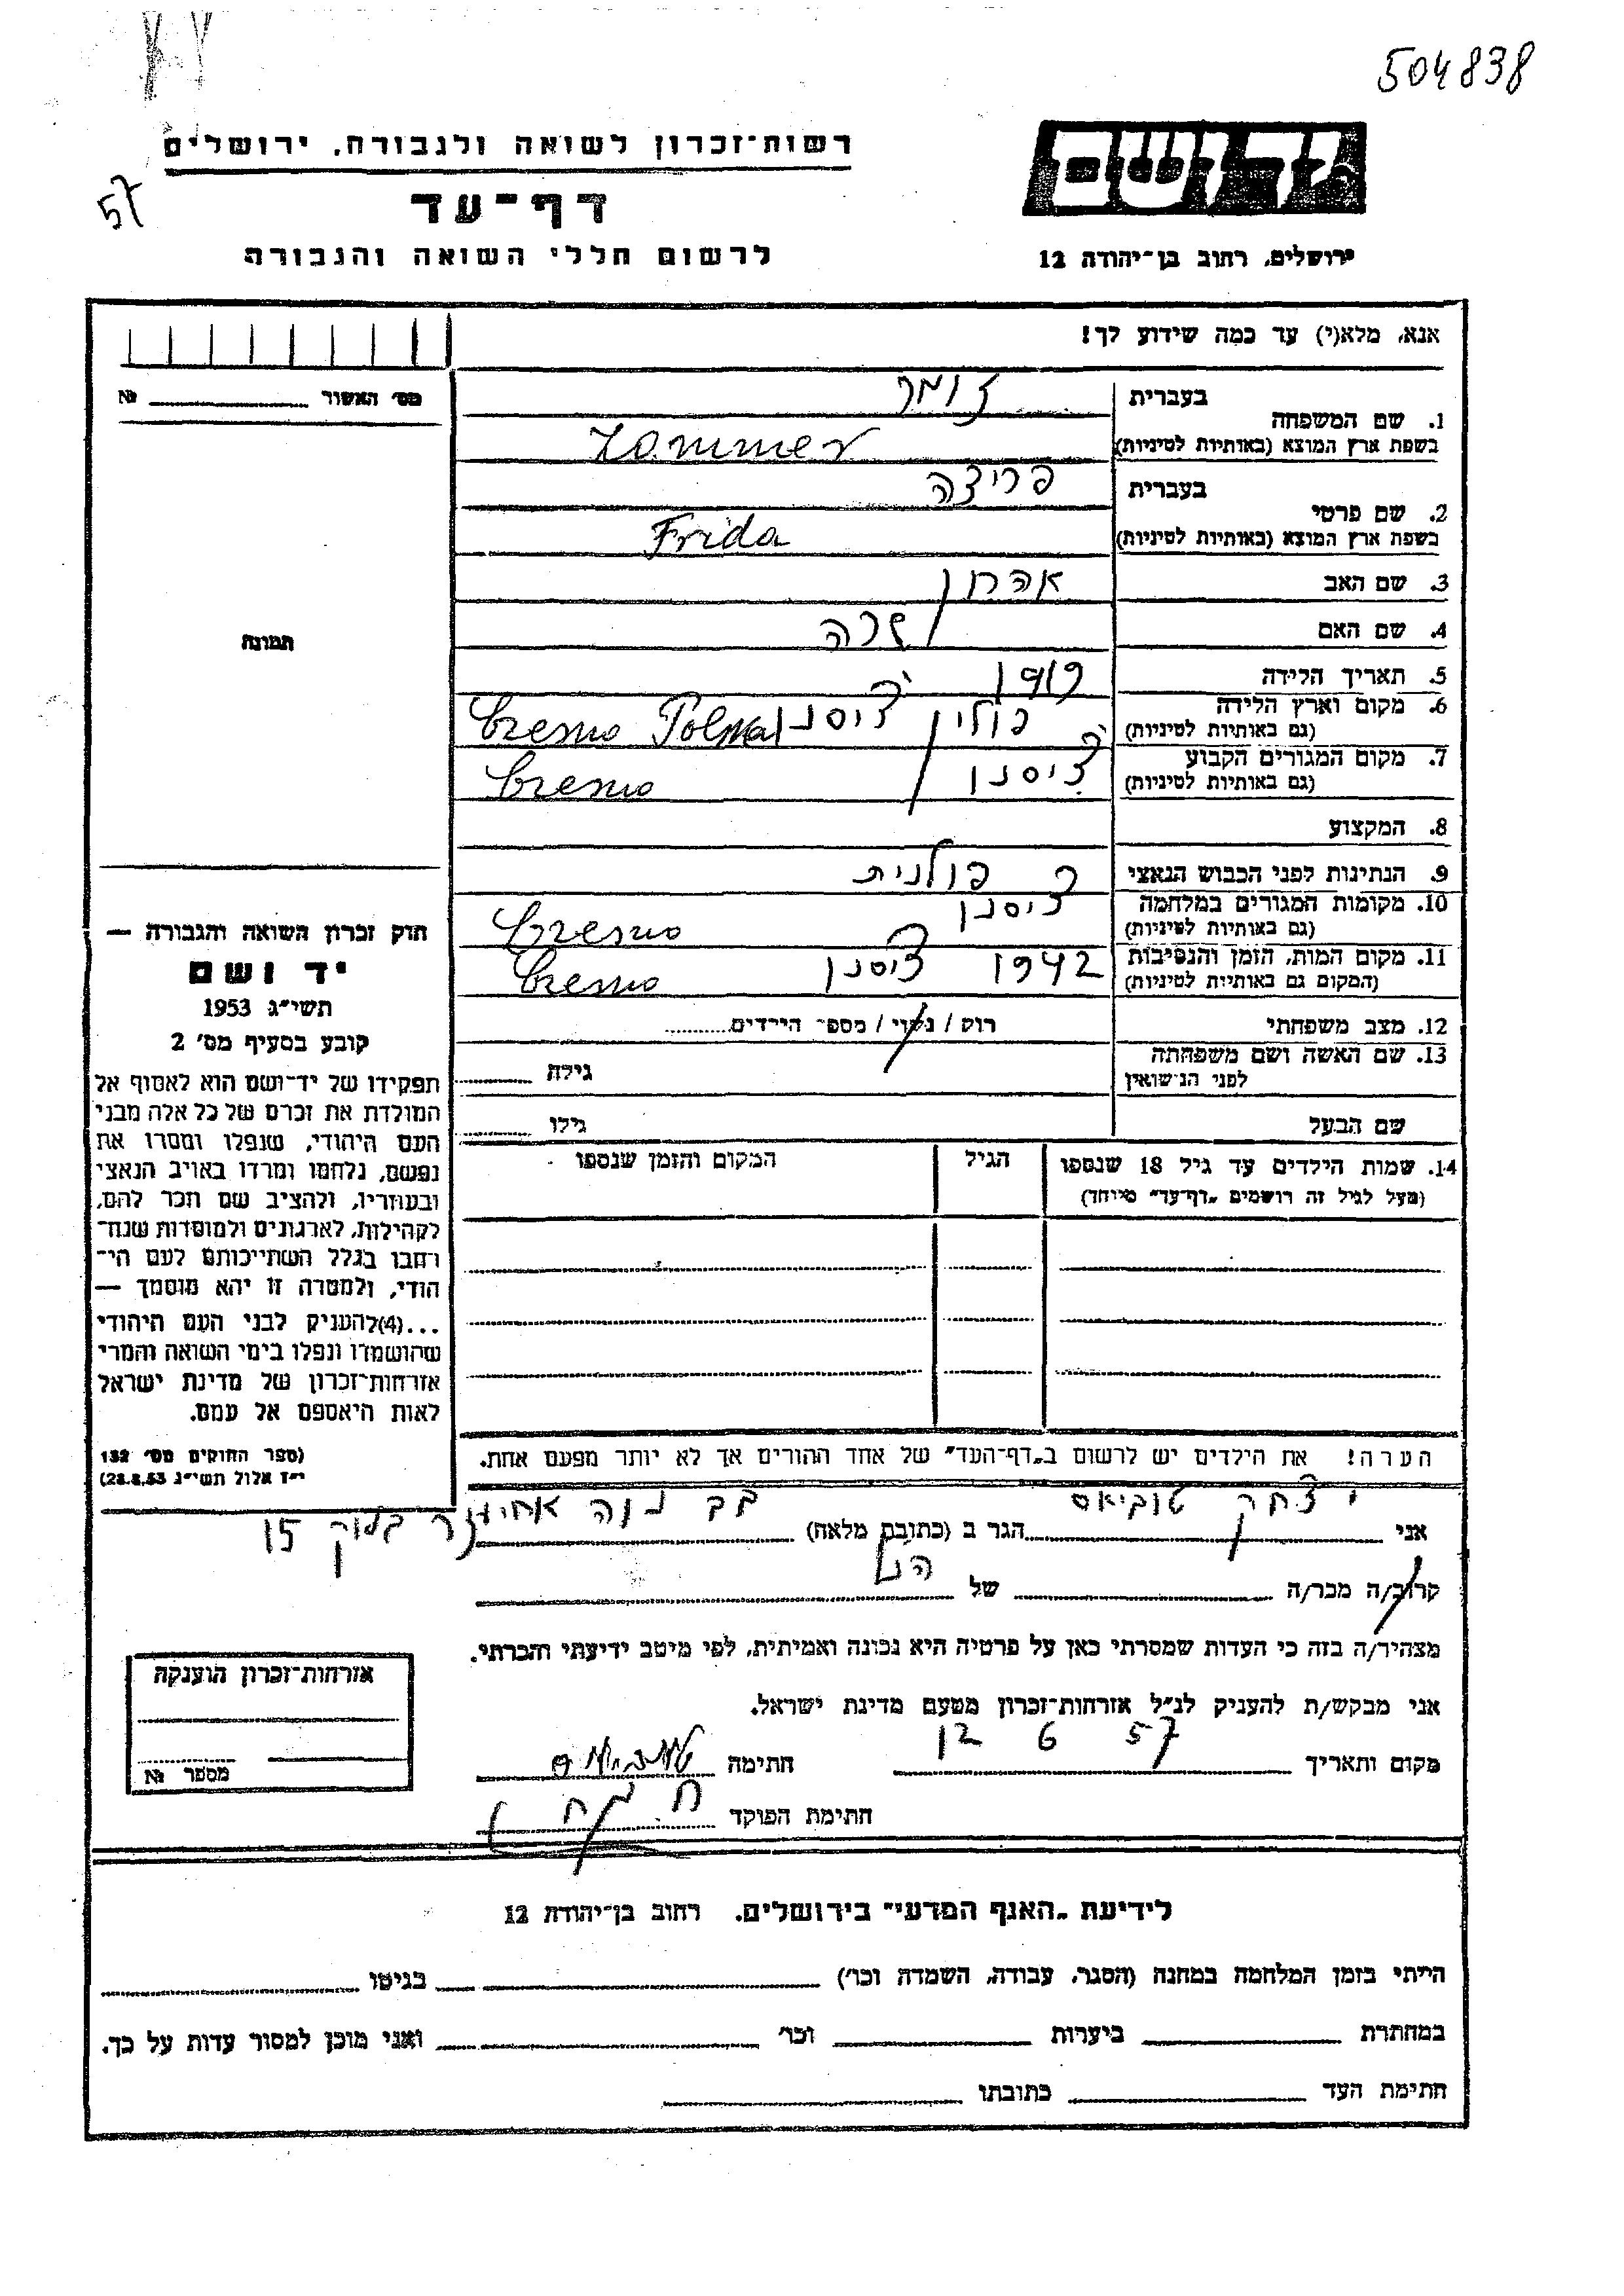 504838
רשות־זכרון לשואה ולגבורה, ירושלים
57
דף־עד
לרשום חללי השואה והגבורה
יד ושם
ירושלים, רחוב בן־יהודה 12
אנא, מלא(י) עד כמה שידוע לך!
מס׳ האשור № 
1. שם המשפחה
בעברית
זומר
בשפת ארץ המוצא (באותיות לטיניות)
Zommer
2. שם פרטי
בעברית
פרידה
בשפת ארץ המוצא (באותיות לטיניות)
Frida
3. שם האב אהרון
4. שם האם שרה
תמונה
5. תאריך הלידה 1919
6. מקום וארץ הלידה
(גם באותיות לטיניות)
פולין
7. מקום המגורים הקבוע
(גם באותיות לטיניות)
8. המקצוע
9. הנתינות לפני הכבוש הנאצי פולנית
10. מקומות המגורים במלחמה
(גם באותיות לטיניות)
11. מקום המות, הזמן והנסיבות
(המקום גם באותיות לטיניות)
1942
12. מצב משפחתי רוק / נשוי / מספר הילדים
13. שם האשה ושם משפחתה
לפני הנישואין
גילה
שם הבעל גילו
14. שמות הילדים עד גיל 18 שנספו
(מעל לגיל זה רושמים „דף־עד״ מיוחד)
הגיל
המקום והזמן שנספו
חוק זכרון השואה והגבורה —
יד ושם
תשי״ג 1953
קובע בסעיף מס׳ 2
תפקידו של יד־ושם הוא לאסוף אל
המולדת את זכרם של כל אלה מבני
העם היהודי, שנפלו ומסרו את
נפשם, נלחמו ומרדו באויב הנאצי
ובעוזריו, ולהציב שם וזכר להם,
לקהילות, לארגונים ולמוסדות שנח־
רבו בגלל השתייכותם לעם הי־
הודי, ולמטרה זו יהא מוסמך —
...(4)להעניק לבני העם היהודי
שהושמדו ונפלו בימי השואה והמרי
אזרחות־זכרון של מדינת ישראל
לאות היאספם אל עמם.
(ספר החוקים מס׳ 132
י״ז אלול תשי״ג 28.8.53)
הערה! את הילדים יש לרשום ב„דף־העד״ של אחד ההורים אך לא יותר מפעם אחת.
אני יצחק טוביאס הגר ב (כתובת מלאה) בב נוה אחיעזר בלוק 15
קרוב/ה מכר/ה של הנ״ל
מצהיר/ה בזה כי העדות שמסרתי כאן על פרטיה היא נכונה ואמיתית, לפי מיטב ידיעתי והכרתי.
אני מבקש/ת להעניק לנ״ל אזרחות־זכרון מטעם מדינת ישראל.
מקום ותאריך 12 6 57 חתימה טוביאס
חתימת הפוקד
אזרחות־זכרון הוענקה
מספר №
לידיעת „האגף המדעי״ בירושלים. רחוב בן־יהודה 12
הייתי בזמן המלחמה במחנה (הסגר, עבודה, השמדה וכו׳) בגיטו
במחתרת ביערות וכו׳ ואני מוכן למסור עדות על כך.
חתימת העד כתובתו